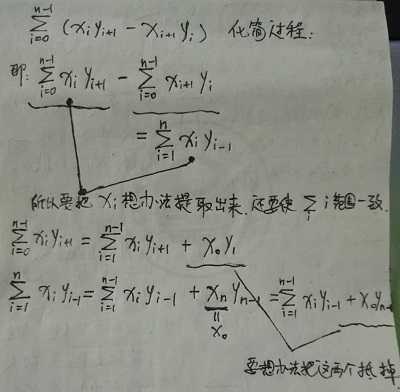 ∑_{i=0}^{n-1} (x_i y_{i+1} - x_{i+1} y_i) 化简过程:
即: ∑_{i=0}^{n-1} x_i y_{i+1} - ∑_{i=0}^{n-1} x_{i+1} y_i
= ∑_{i=1}^{n} x_i y_{i-1}
所以要把 x_i 想办法提取出来, 还要使 ∑_i i范围一致.
∑_{i=0}^{n-1} x_i y_{i+1} = ∑_{i=1}^{n-1} x_i y_{i+1} + x_0 y_1
∑_{i=1}^{n} x_i y_{i-1} = ∑_{i=1}^{n-1} x_i y_{i-1} + x_n y_{n-1} = ∑_{i=1}^{n-1} x_i y_{i-1} + x_0 y_{n-1}
||
x_0
要想办法把这两个抵掉